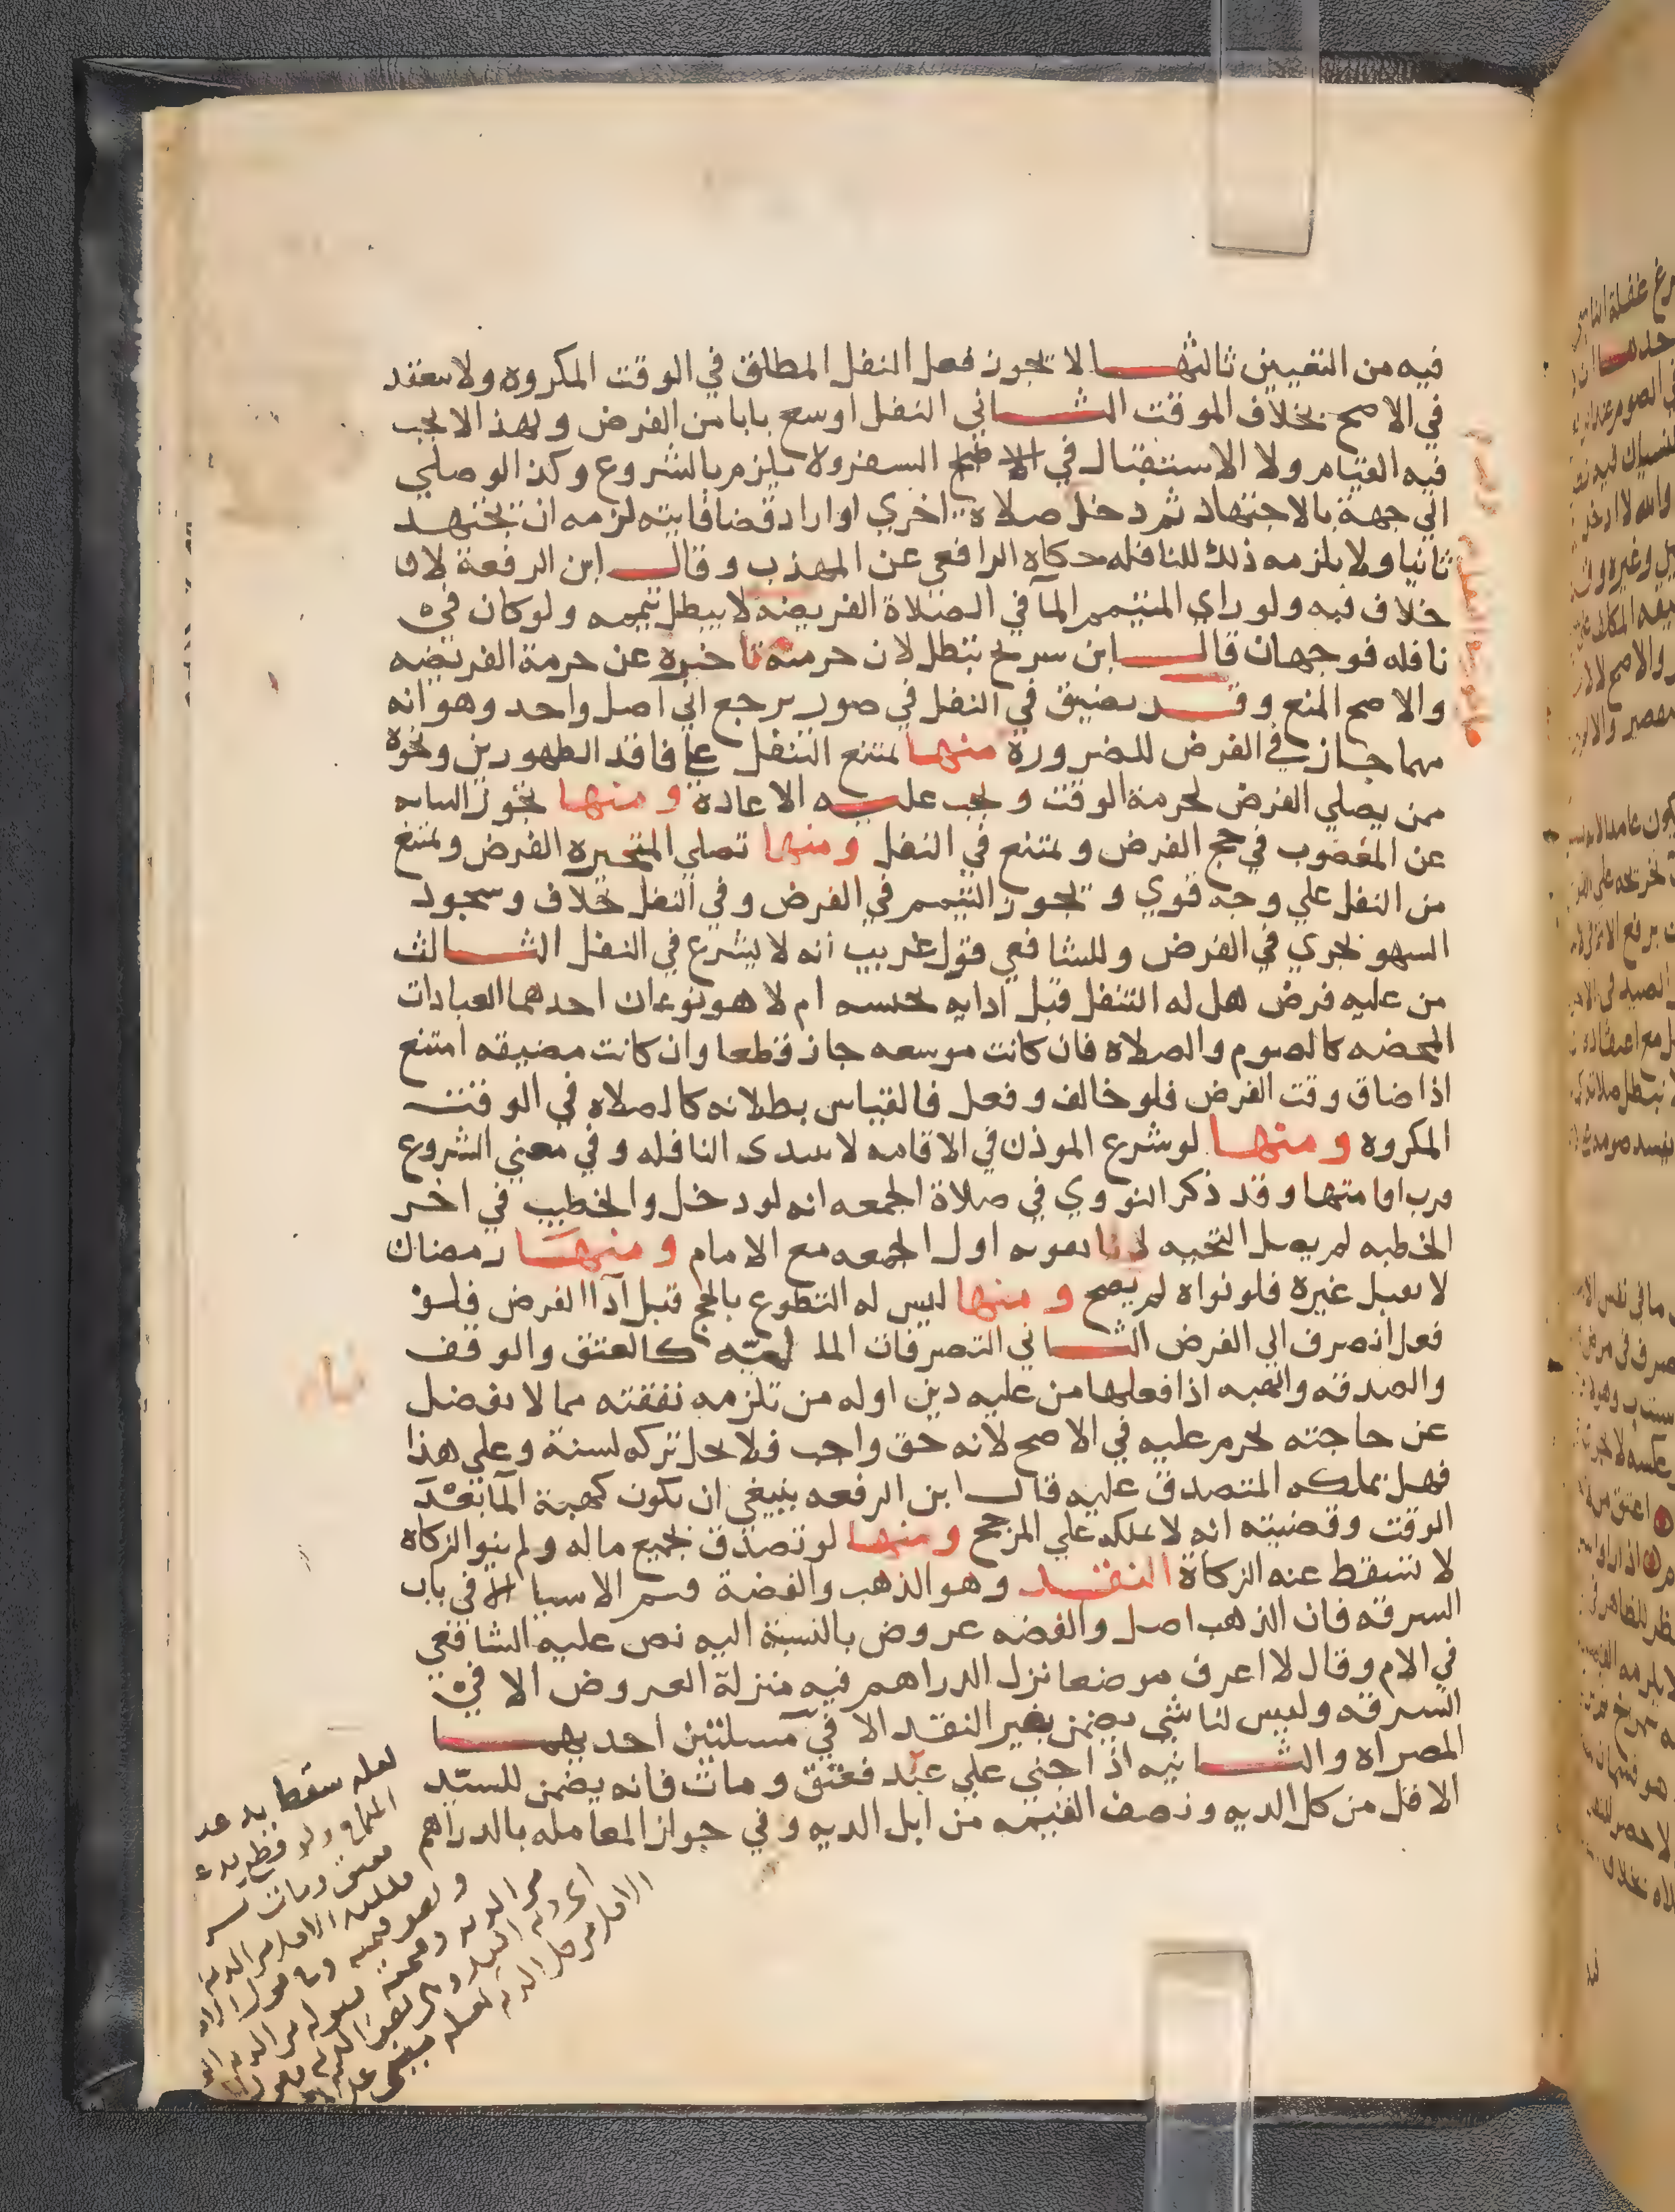 فيه من التعيين ثالثها لا يجوز فعل النفل المطلق في الوقت المكروه ولا ينعقد
في الاصح بخلاف الموقت الثاني النفل اوسع بابا من الفرض ولهذا لا يجب
فيه القيام ولا الاستقبال في السفر ولا يلزم بالشروع وكذا لو صلي
الي جهة بالاجتهاد ثم دخل صلاة اخري او اراد قضا فايته لزمه ان يجتهد
ثانيا ولا يلزمه ذلك للنافله حكاه الرافعي عن المهذب وقال ابن الرفعة لا
خلاف فيه ولو راي المتيمم المآ في الصلاة الفريضه لا يبطل تيممه ولو كان في
نافله فوجهان قال ابن سريج تبطل لان حرمته تاخرة عن حرمة الفريضه
والاصح المنع وقد يضيق في النفل في صور يرجع الي اصل واحد وهو انه
مهما جاز في الفرض للضرورة منها يمتنع التنفل على فاقد الطهورين ونحوه
ممن يصلي الفرض لحرمة الوقت ويجب عليه الاعادة ومنها تجوز النيابه
عن المغضوب في حج الفرض ويمتنع في النفل ومنها تصلي المتحيره الفرض ويمتنع
من النفل علي وجه قوي ويجوز التيمم في الفرض وفي النفل خلاف وسجود
السهو يجري في الفرض وللشافعي قول غريب انه لا يشرع في النفل الثالث
من عليه فرض هل له التنفل قبل ادايه بجنسه ام لا هو نوعان احدهما العبادات
المحضه كالصوم والصلاه فان كانت موسعه جاز قطعا وان كانت مضيقه امتنع
اذا ضاق وقت الفرض فلو خالف وفعل فالقياس بطلانه كالصلاه في الوقت
المكروه ومنها لو شرع الموذن في الاقامه لا يبتدي النافله وفي معني الشروع
قرب اقامتها وقد ذكر النووي في صلاة الجمعه انه لو دخل والخطيب في اخر
الخطبه لم يصل التحيه لئلا يفوته اول الجمعه مع الامام ومنها رمضان
لا يقبل غيره فلو نواه لم يصح ومنها ليس له التطوع بالحج قبل آداالفرض فلو
فعل انصرف الي الفرض الثاني التصرفات الماليه كالعتق والوقف
والصدقه والهبه اذا فعلها من عليه دين او له من تلزمه نفقته مما لا يفضل
عن حاجته يحرم عليه في الاصح لانه حق واجب فلا يحل تركه لسنة وعلي هذا
فهل يملكه المتصدق عليه قال ابن الرفعه ينبغي ان يكون كهبة المآ بعد
الوقت وقضيته انه لا يملكه علي المرجح ومنها لو تصدق بجميع ماله ولم ينو الزكاه
لا تسقط عنه الزكاة النقد وهو الذهب والفضة قيم الاشيا الا في باب
السرقه فان الذهب اصل والفضه عروض بالنسبة اليه نص عليه الشافعي
في الام وقال لا اعرف موضعا نزل الدراهم فيه منزلة العروض الا في
السرقه وليس لنا شي يضمن بغير النقد الا في مسلتين احديهما
المصراه والثانيه اذا جني علي عبد فعتق ومات فانه يضمن للسيد
الاقل من كل الديه ونصف القيمه من ابل الديه وفي جواز المعامله بالدراهم
لعله سقط يد عبد